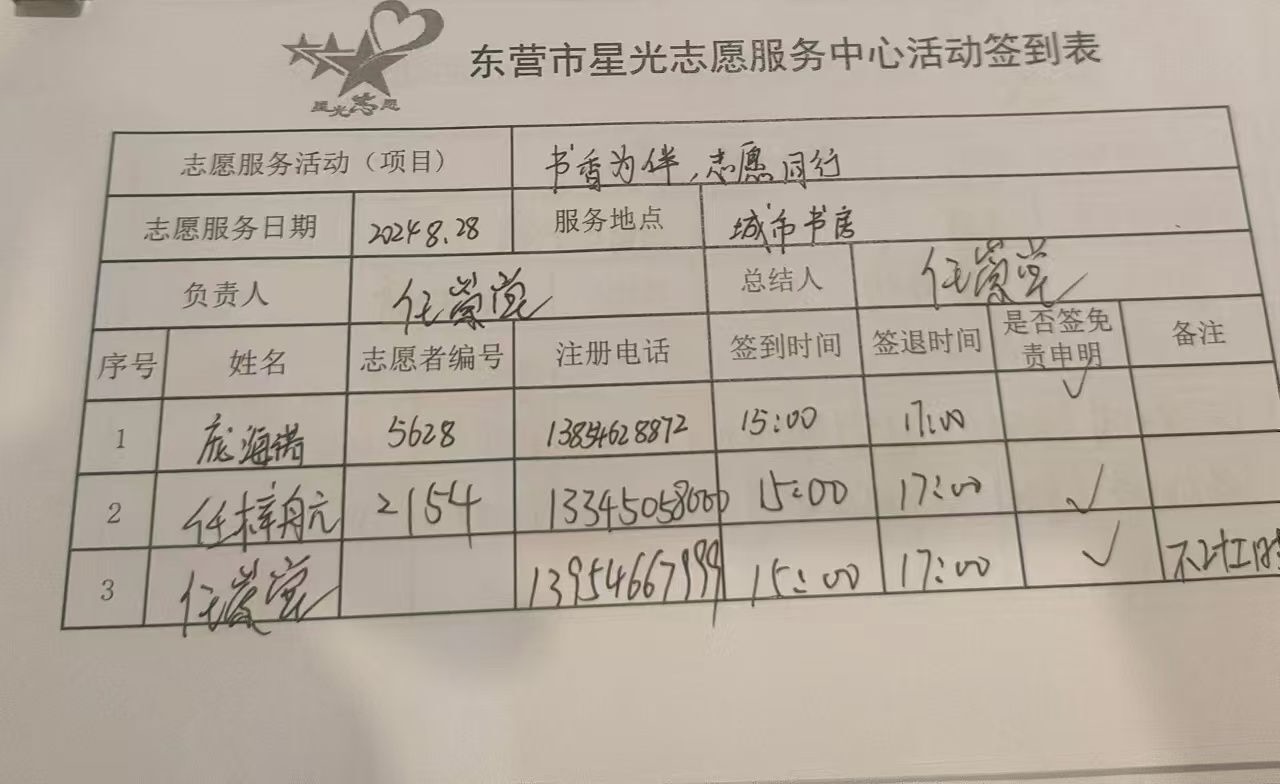 星光志愿
东营市星光志愿服务中心活动签到表
志愿服务活动（项目） 书香为伴，志愿同行
志愿服务日期 2024 8.28 服务地点 城市书房
负责人 任 堂 总结人 任 堂
序号 姓名 志愿者编号 注册电话 签到时间 签退时间 是否签免责申明 备注
1 庞海 5628 13854628872 15:00 17:00 ✓
2 任梓航 2154 13345058000 15:00 17:00 ✓
3 任 堂 13954667999 15:00 17:00 ✓ 不计工时